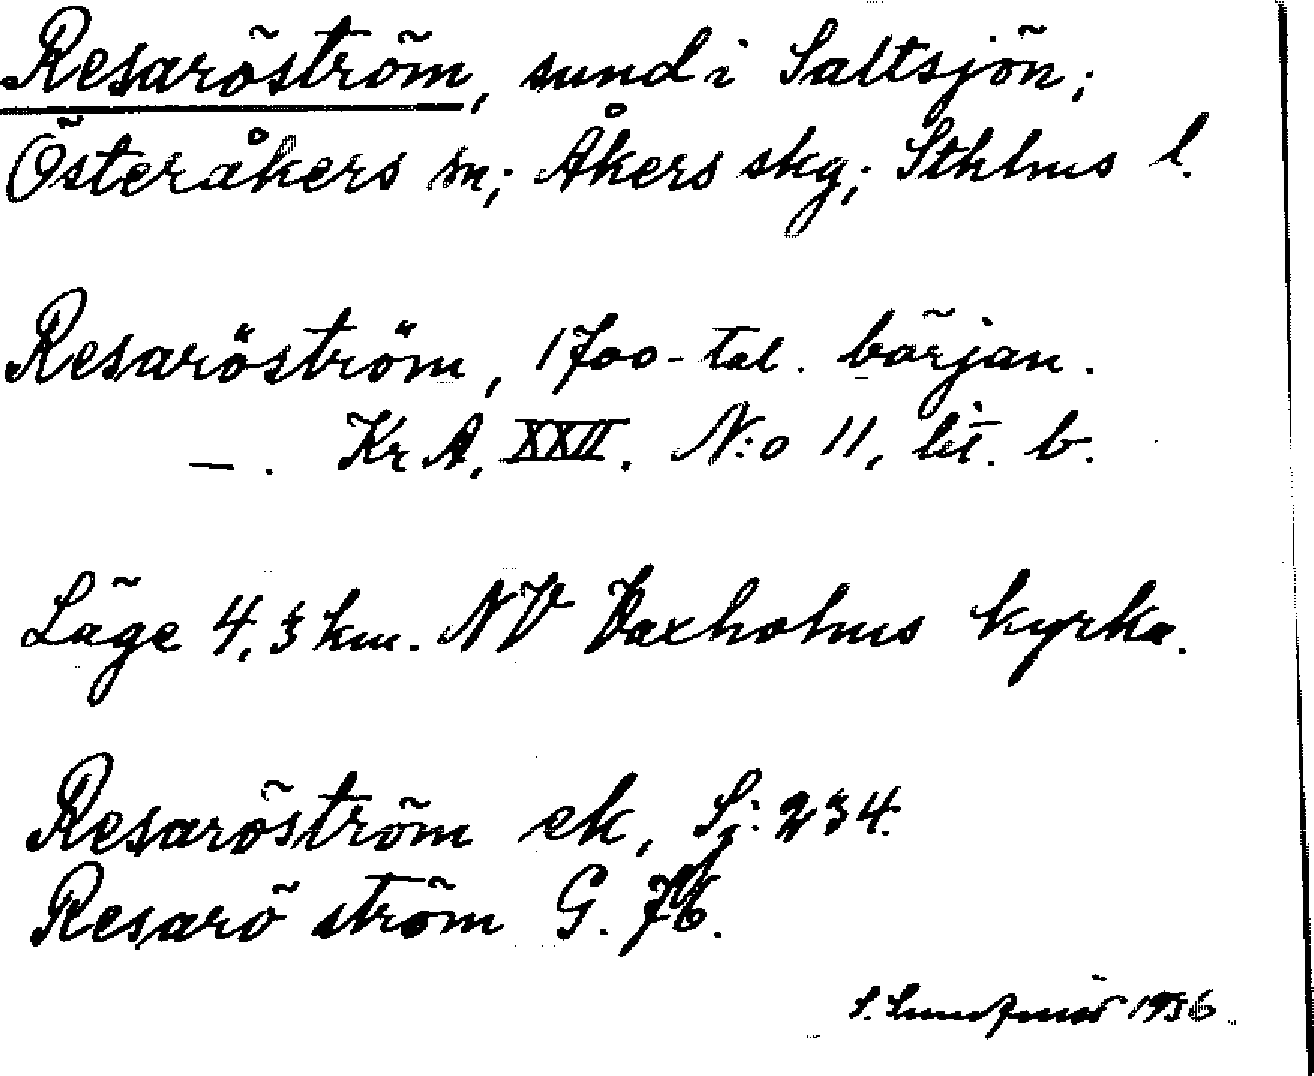 Resaröström, sund i Saltsjön;
Österåkers sn; Åkers skg; Sthlms l.
Resaröström, 1700-tal. början.
— . Kr A, XXII. N:o 11, lit. b.
Läge 4,3 km. NV Vaxholms kyrka.
Resaröström ek, Sj: 234.
Resarö ström G. 76.
S. 1936